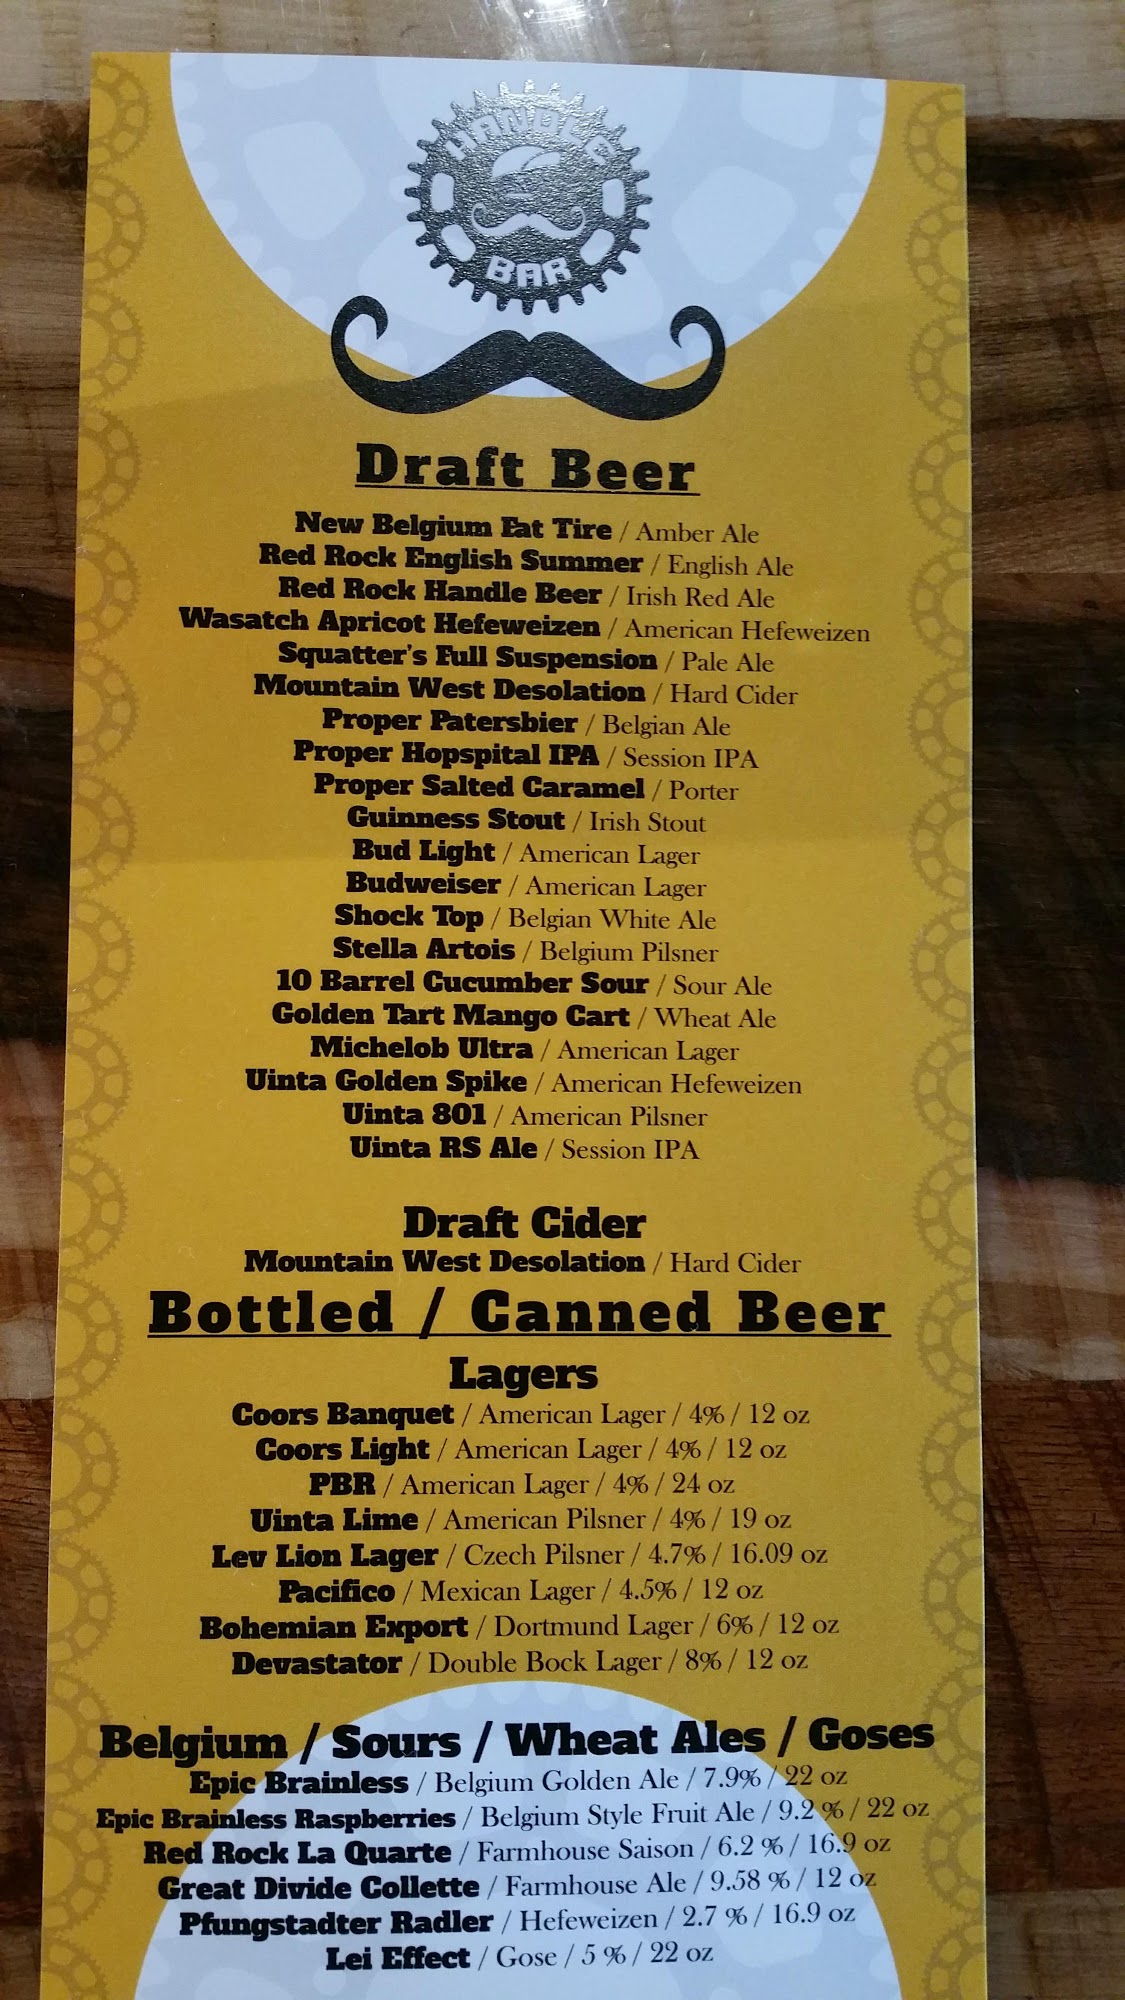 HANDLE
BAR
Draft Beer
New Belgium Fat Tire / Amber Ale
Red Rock English Summer / English Ale
Red Rock Handle Beer / Irish Red Ale
Wasatch Apricot Hefeweizen / American Hefeweizen
Squatter's Full Suspension / Pale Ale
Mountain West Desolation / Hard Cider
Proper Patersbier / Belgian Ale
Proper Hopspital IPA / Session IPA
Proper Salted Caramel / Porter
Guinness Stout / Irish Stout
Bud Light / American Lager
Budweiser / American Lager
Shock Top / Belgian White Ale
Stella Artois / Belgium Pilsner
10 Barrel Cucumber Sour / Sour Ale
Golden Tart Mango Cart / Wheat Ale
Michelob Ultra / American Lager
Uinta Golden Spike / American Hefeweizen
Uinta 801 / American Pilsner
Uinta RS Ale / Session IPA
Draft Cider
Mountain West Desolation / Hard Cider
Bottled / Canned Beer
Lagers
Coors Banquet / American Lager / 4% / 12 oz
Coors Light / American Lager / 4% / 12 oz
PBR / American Lager / 4% / 24 oz
Uinta Lime / American Pilsner / 4% / 19 oz
Lev Lion Lager / Czech Pilsner / 4.7% / 16.09 oz
Pacifico / Mexican Lager / 4.5% / 12 oz
Bohemian Export / Dortmund Lager / 6% / 12 oz
Devastator / Double Bock Lager / 8% / 12 oz
Belgium / Sours / Wheat Ales / Goses
Epic Brainless / Belgium Golden Ale / 7.9% / 22 oz
Epic Brainless Raspberries / Belgium Style Fruit Ale / 9.2 % / 22 oz
Red Rock La Quarte / Farmhouse Saison / 6.2 % / 16.9 oz
Great Divide Collette / Farmhouse Ale / 9.58 % / 12 oz
Pfungstadter Radler / Hefeweizen / 2.7 % / 16.9 oz
Lei Effect / Gose / 5 % / 22 oz